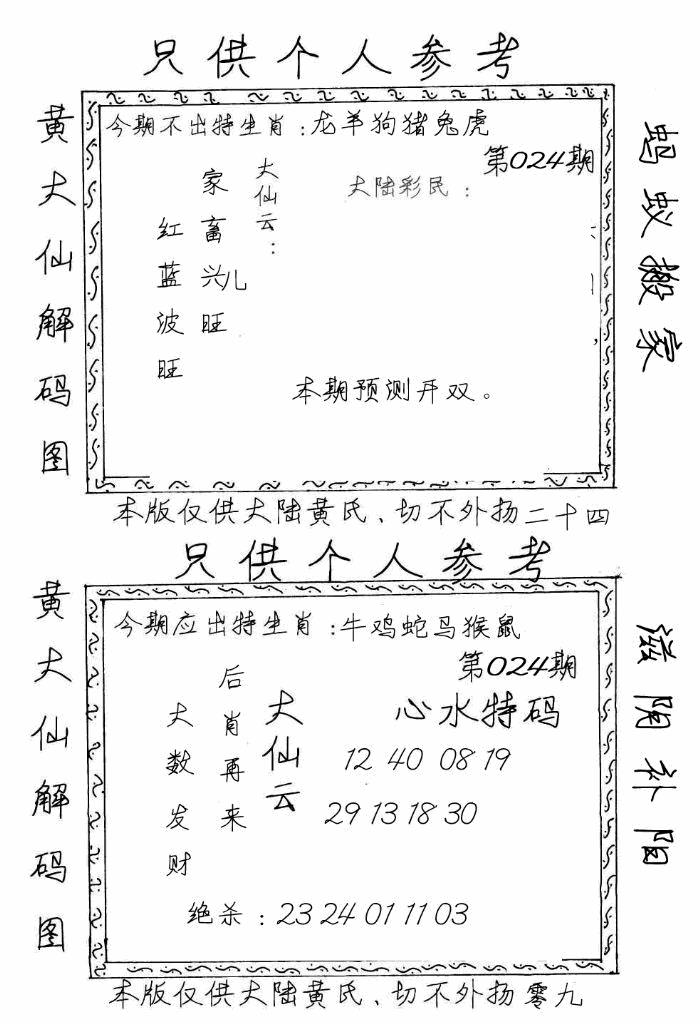 只供个人参考
黄大仙解码图
今期不出特生肖：龙羊狗猪兔虎
第024期
大仙云：
家畜兴旺儿
红蓝波旺
大陆彩民：
本期预测开双。
蚂蚁搬家
本版仅供大陆黄氏、切不外扬二十四
只供个人参考
黄大仙解码图
今期应出特生肖：牛鸡蛇马猴鼠
第024期
大仙云
后肖再来
大数发财
心水特码
12 40 08 19
29 13 18 30
绝杀：23 24 01 11 03
滋阴补阳
本版仅供大陆黄氏、切不外扬零九